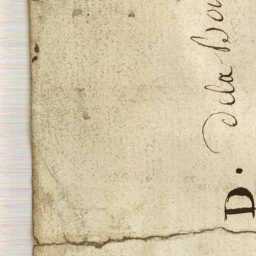 D. dela Bou